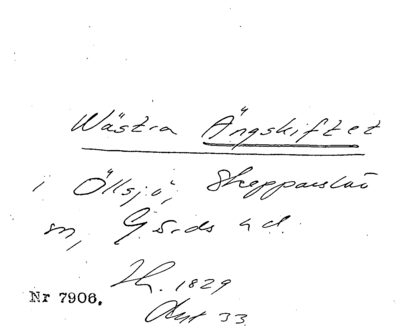 Wästra Ängskiftet
i Öllsjö, Skepparslöv
sn, Gärds hd.
Th. 1829
Avt 33
Nr 7906.